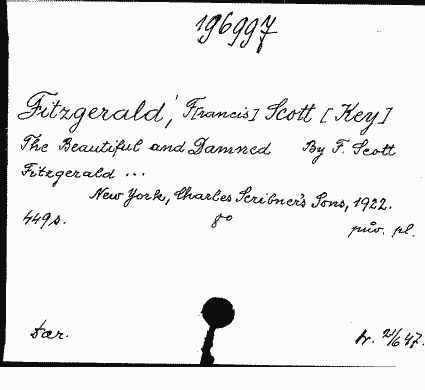 196997
Fitzgerald, F[rancis] Scott [Key]
The Beautiful and Damned By F. Scott
Fitzgerald ...
New York, Charles Scribner's Sons, 1922.
449s. 8o pův. pl.
dar. tr. 21/6 47.